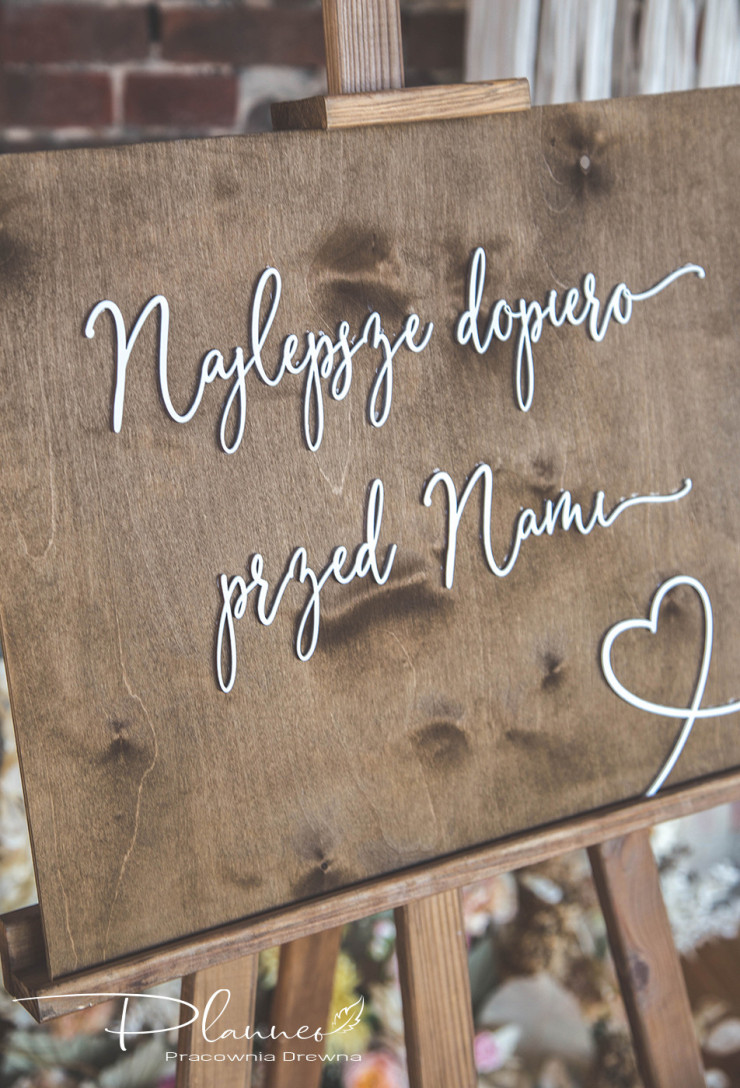 Najlepsze dopiero
przed Nami
Planneo
Pracownia Drewna